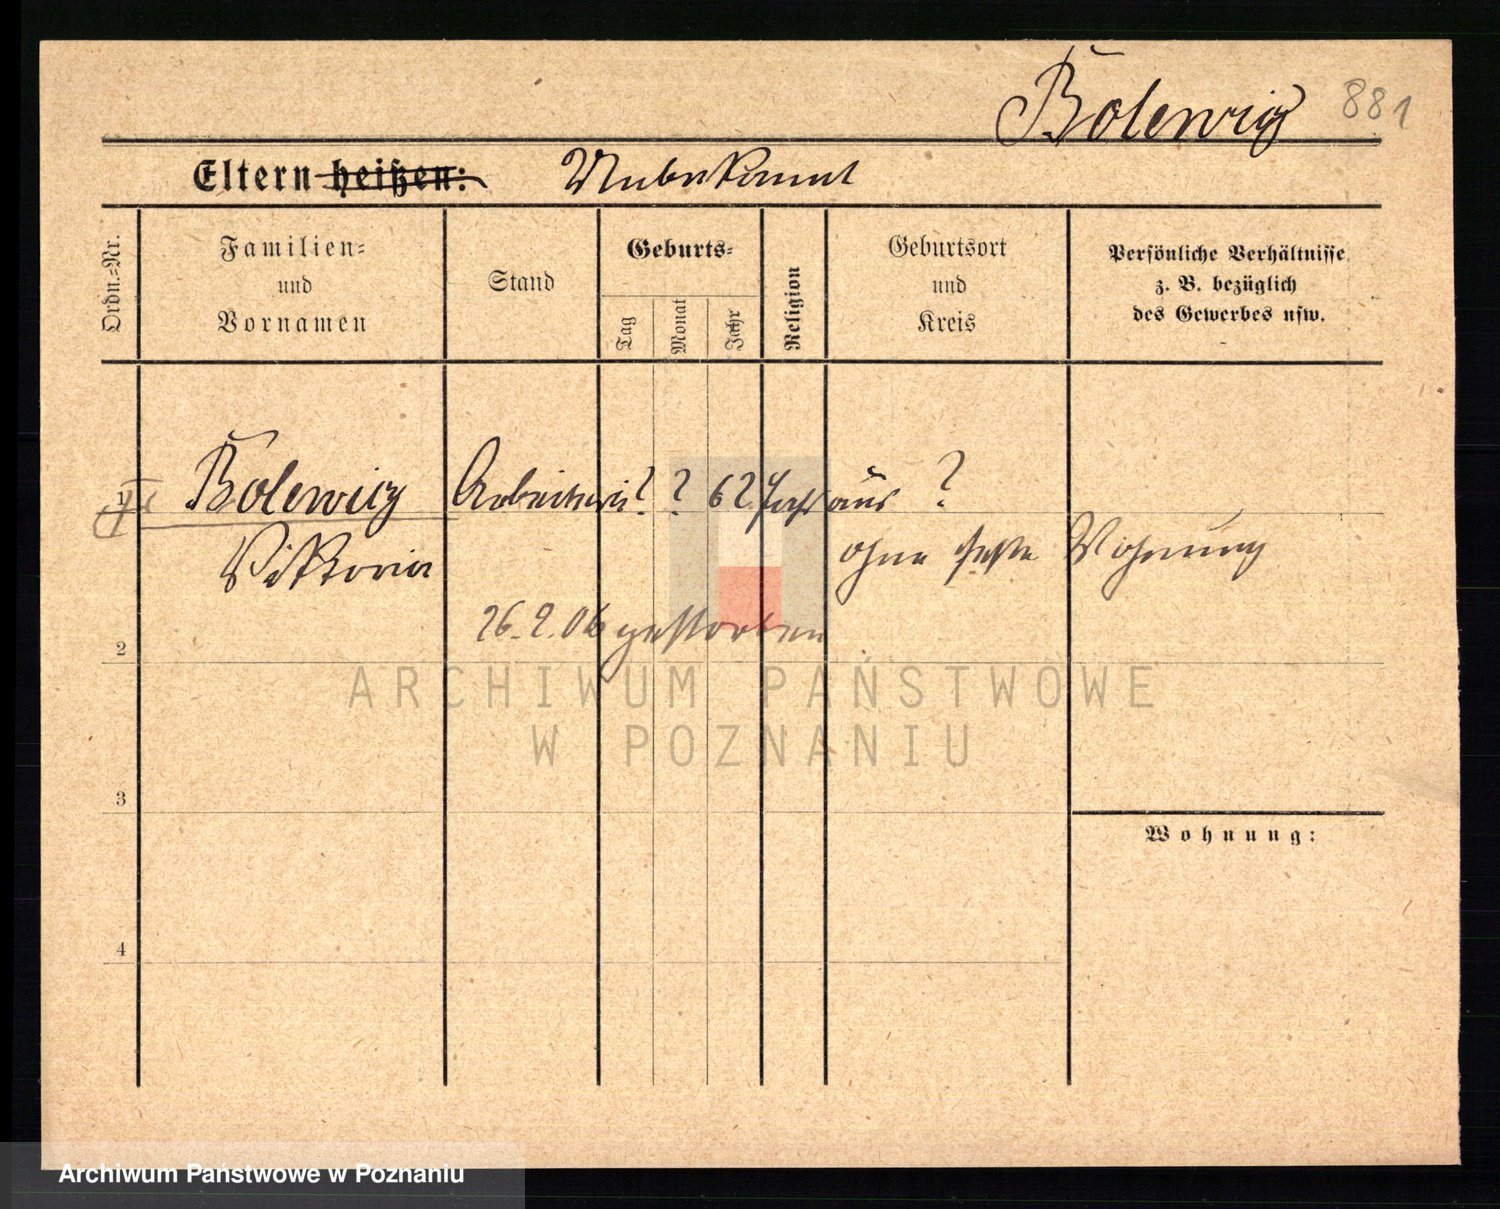 Bolewicz 881
Eltern heißen: Unbekannt
Ordn.=Nr.
Familien=
und
Vornamen
Stand
Geburts=
Tag
Monat
Jahr
Religion
Geburtsort
und
Kreis
Persönliche Verhältnisse
z. B. bezüglich
des Gewerbes usw.
1 Bolewicz Arbeiterin ? ? 62 Jahr aus ?
Viktoria ohne feste Wohnung
26.2.06 gestorben
2
ARCHIWUM PAŃSTWOWE
W POZNANIU
3
Wohnung:
4
Archiwum Państwowe w Poznaniu